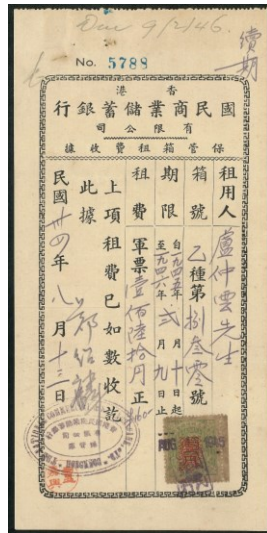 Due 9/2/46.
續期
No. 5788
香港
國民商業儲蓄銀行
有限公司
保管箱租費收據
租用人 盧仲雲先生
箱號 乙種第捌叁零號
期限 自一九四五年 弍月十日起
至一九四六年 弍月九日止
租費 軍票壹佰陸拾円正 ¥160
上項租費已如數收訖
此據
民國卅四年八月十三日